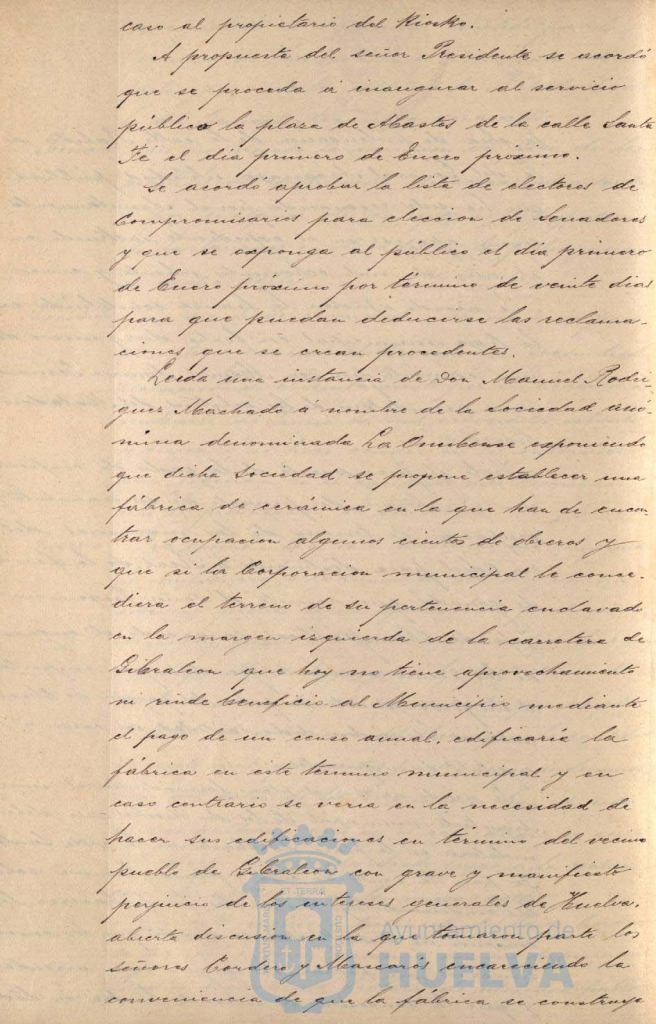 caso al propietario del Kiosko.
A propuesta del señor Presidente se acordó
que se proceda á inaugurar al servicio
público la plaza de Abastos de la calle Santa
Fé el dia primero de Enero próximo.
Se acordó aprobar la lista de electores de
Compromisarios para eleccion de Senadores
y que se exponga al público el dia primero
de Enero próximo por término de veinte dias
para que puedan deducirse las reclama-
ciones que se crean procedentes.
Leida una instancia de Don Manuel Rodri-
guez Machado á nombre de la Sociedad anó-
nima denominada La Onubense exponiendo
que dicha Sociedad se propone establecer una
fábrica de cerámica en la que han de encon-
trar ocupacion algunos cientos de obreros y
que si la Corporacion municipal le conce-
diera el terreno de su pertenencia enclavado
en la margen izquierda de la carretera de
Gibraleon que hoy no tiene aprovechamiento
ni rinde beneficio al Municipio mediante
el pago de un censo anual, edificaria la
fábrica en este termino municipal y en
caso contrario se veria en la necesidad de
hacer sus edificaciones en término del vecino
pueblo de Gibraleon con grave y manifiesto
perjuicio de los intereses generales de Huelva.
abierta discusion en la que tomaron parte los
señores Cordero y Mascarós encareciendo la
conveniencia de que la fábrica se construya
Ayuntamiento de
HUELVA